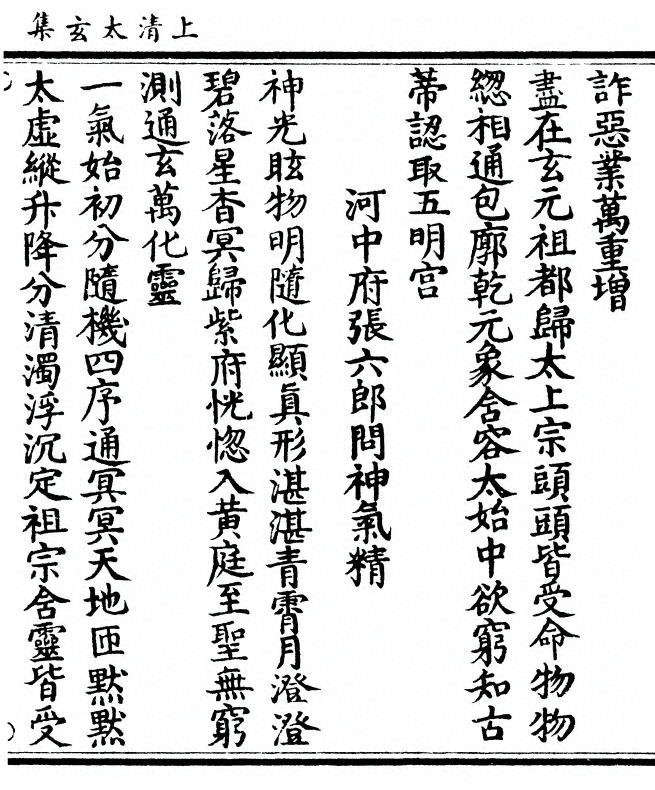 上清太玄集
詐惡業萬重增
盡在玄元祖都歸太上宗頭頭皆受命物物
緫相通包廓乾元象含容太始中欲窮知古
蒂認取五明宮
河中府張六郎問神氣精
神光眩物明隨化顯真形湛湛青霄月澄澄
碧落星杳冥歸紫府恍惚入黃庭至聖無窮
測通玄萬化靈
一氣始初分隨機四序通冥冥天地匝默默
太虛縱升降分清濁浮沉定祖宗含靈皆受